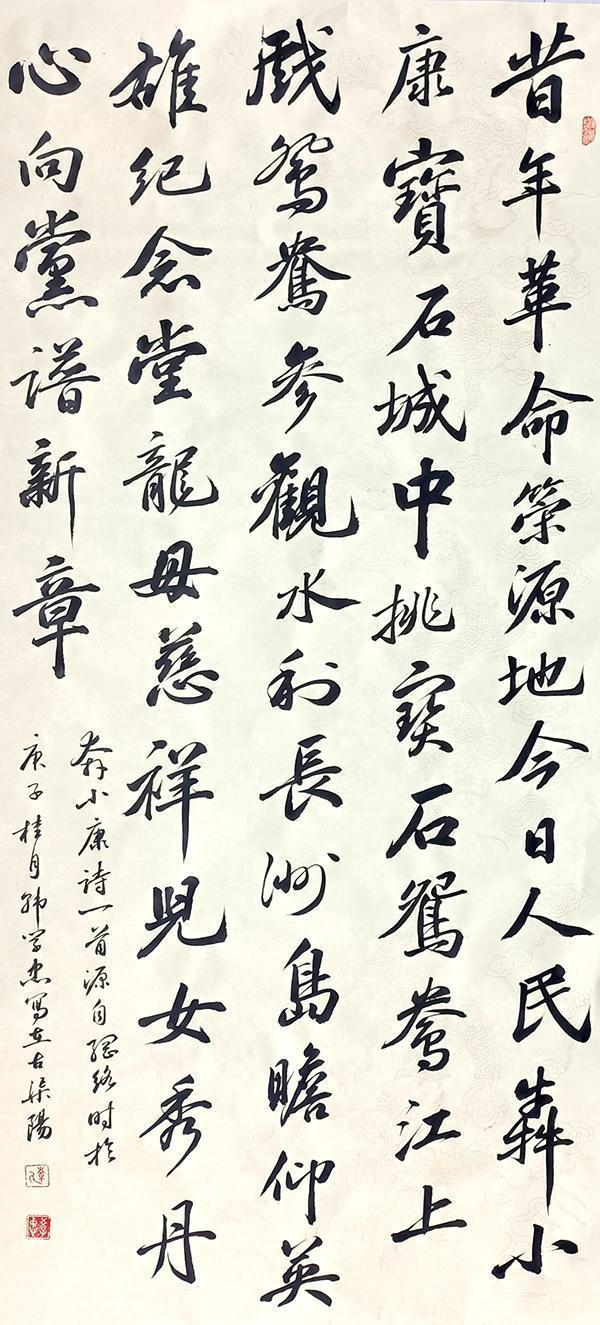 昔年革命策源地今日人民犇小
康寶石城中挑寳石鴛鴦江上
戲鴛鴦參觀水利長洲島瞻仰英
雄紀念堂龍母慈祥兒女秀丹
心向黨譜新章
奔小康詩一首源自網絡時於
庚子桂月韩学忠寫在古渠陽